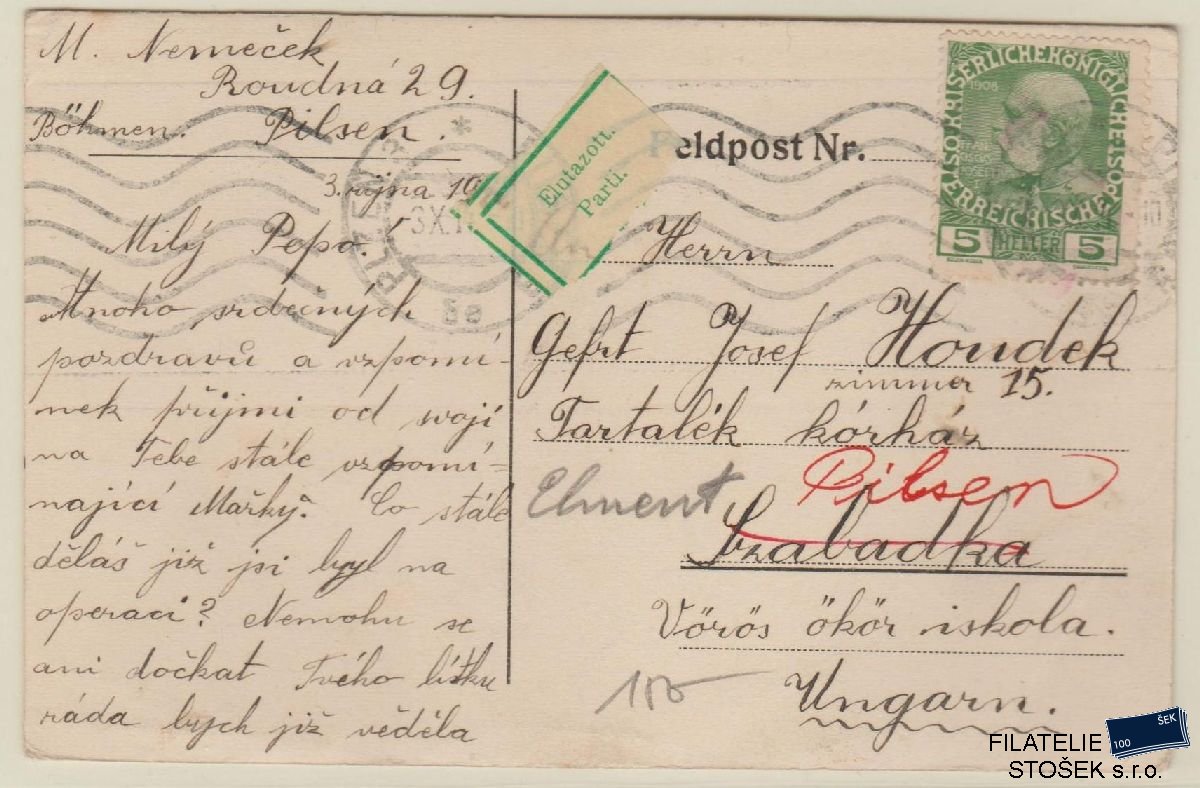 M. Nemeček
Roudná 29.
Böhmen. Pilsen.
3. října 19
Milý Pepo!
Mnoho srdečných
pozdravů a vzpomí-
nek přijmi od svojí
na Tebe stále vzpomí-
nající Mařky. Co stále
děláš již jsi byl na
operaci? Nemohu se
ani dočkat Tvého lístku
ráda bych již věděla
PLZEŇ
3X.1
5a
Elutazott.
Parti.
Feldpost Nr.
KAISERLICHEKÖNIGLICHEÖSTERREICHISCHEPOST
1908
5 HELLER 5
Herrn
Gefrt Josef Houdek
zimmer 15.
Tartalék kórház
Elment Pilsen
Szabadka
Vörös ökör iskola.
Ungarn.
100 ŠEK
FILATELIE
STOŠEK s.r.o.